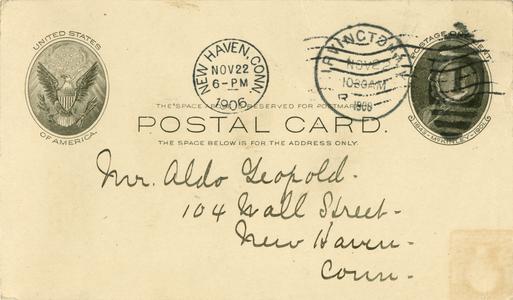 UNITED STATES
OF AMERICA.
NEW HAVEN, CONN.
NOV 22
6-PM
1906
IRVINGTON, N.Y.
NOV 22
1030AM
POSTAGE ONE CENT
1843-McKINLEY-1901
THE SPACE ABOVE RESERVED FOR POSTMARK
POSTAL CARD.
THE SPACE BELOW IS FOR THE ADDRESS ONLY.
Mr. Aldo Leopold-
104 Wall Street-
New Haven-
Conn-